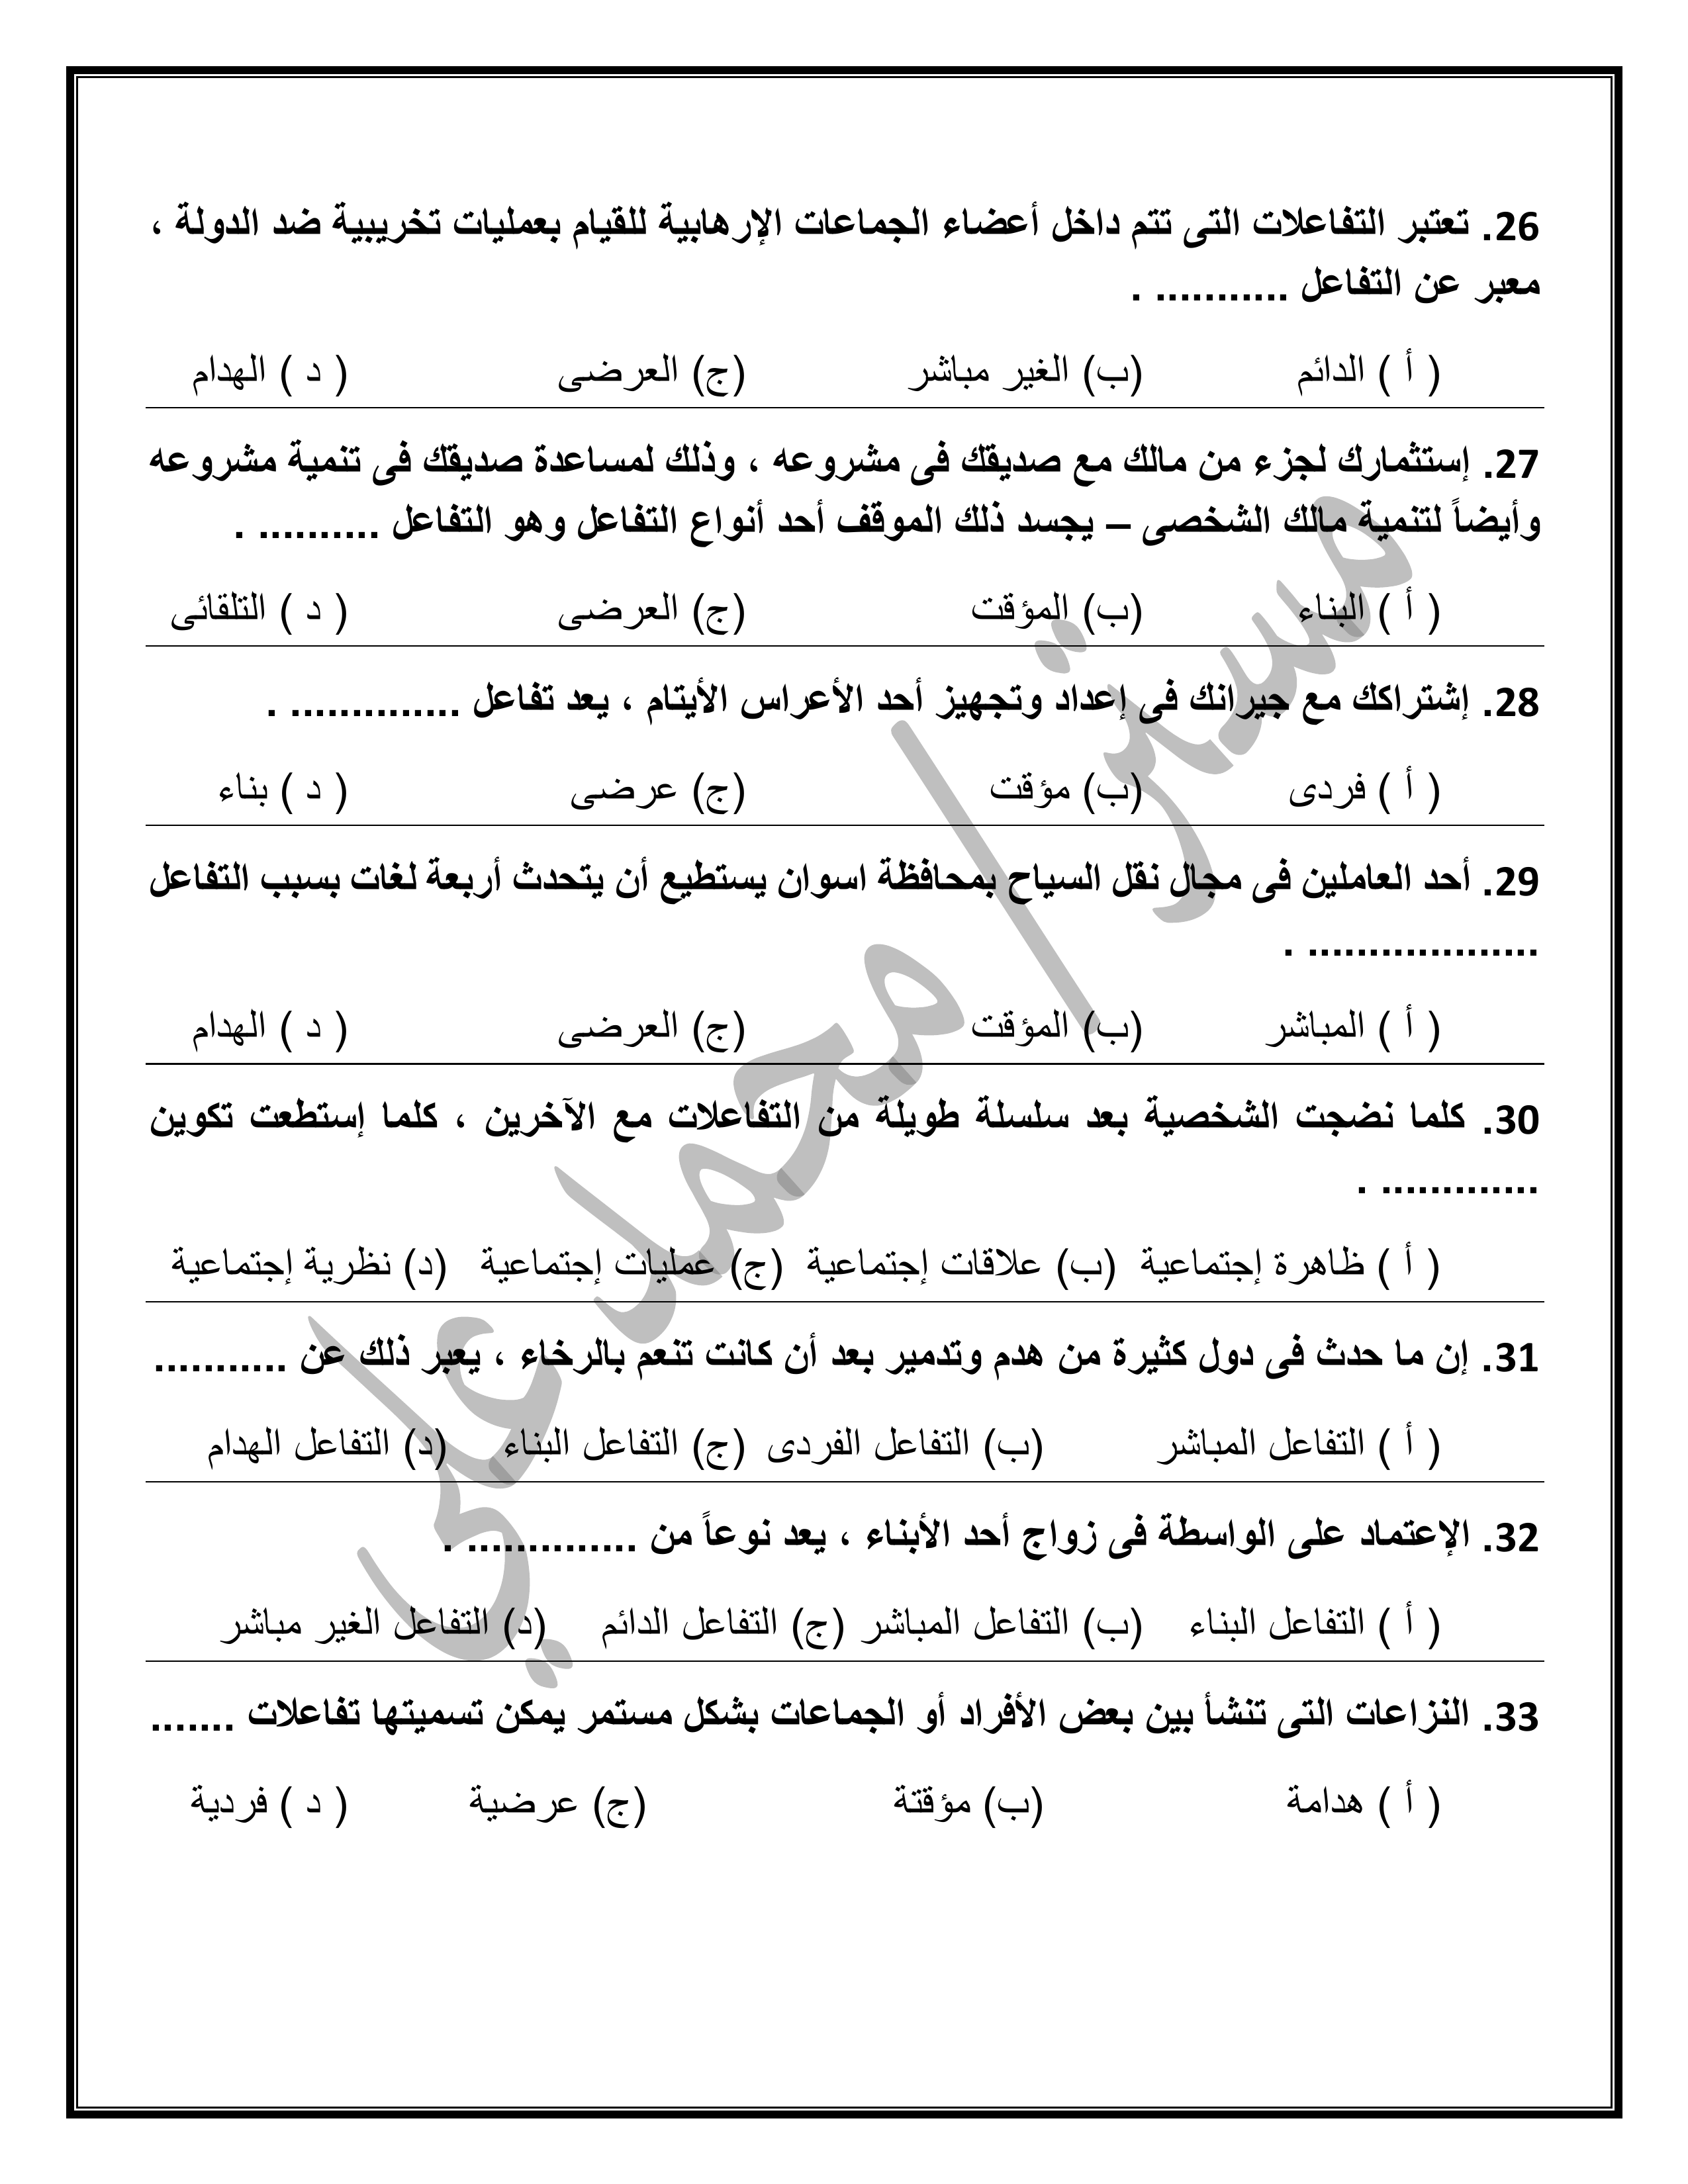 26. تعتبر التفاعلات التى تتم داخل أعضاء الجماعات الإرهابية للقيام بعمليات تخريبية ضد الدولة ،
معبر عن التفاعل ........... .
( أ ) الدائم (ب) الغير مباشر (ج) العرضى ( د ) الهدام
27. إستثمارك لجزء من مالك مع صديقك فى مشروعه ، وذلك لمساعدة صديقك فى تنمية مشروعه
وأيضاً لتنمية مالك الشخصى – يجسد ذلك الموقف أحد أنواع التفاعل وهو التفاعل .......... .
( أ ) البناء (ب) المؤقت (ج) العرضى ( د ) التلقائى
28. إشتراكك مع جيرانك فى إعداد وتجهيز أحد الأعراس الأيتام ، يعد تفاعل .............. .
( أ ) فردى (ب) مؤقت (ج) عرضى ( د ) بناء
29. أحد العاملين فى مجال نقل السياح بمحافظة اسوان يستطيع أن يتحدث أربعة لغات بسبب التفاعل
................... .
( أ ) المباشر (ب) المؤقت (ج) العرضى ( د ) الهدام
30. كلما نضجت الشخصية بعد سلسلة طويلة من التفاعلات مع الآخرين ، كلما إستطعت تكوين
............. .
( أ ) ظاهرة إجتماعية (ب) علاقات إجتماعية (ج) عمليات إجتماعية (د) نظرية إجتماعية
31. إن ما حدث فى دول كثيرة من هدم وتدمير بعد أن كانت تنعم بالرخاء ، يعبر ذلك عن ...........
( أ ) التفاعل المباشر (ب) التفاعل الفردى (ج) التفاعل البناء (د) التفاعل الهدام
32. الإعتماد على الواسطة فى زواج أحد الأبناء ، يعد نوعاً من .............. .
( أ ) التفاعل البناء (ب) التفاعل المباشر (ج) التفاعل الدائم (د) التفاعل الغير مباشر
33. النزاعات التى تنشأ بين بعض الأفراد أو الجماعات بشكل مستمر يمكن تسميتها تفاعلات .......
( أ ) هدامة (ب) مؤقتة (ج) عرضية ( د ) فردية
مستر/محمد علي